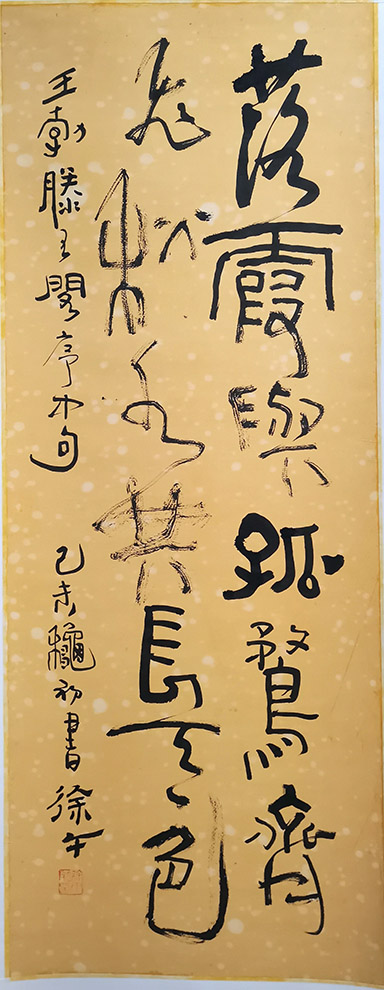 落霞與孤鶩齊
飛秋水共長天一色
王勃滕王閣序中句 己未龝初書 徐午